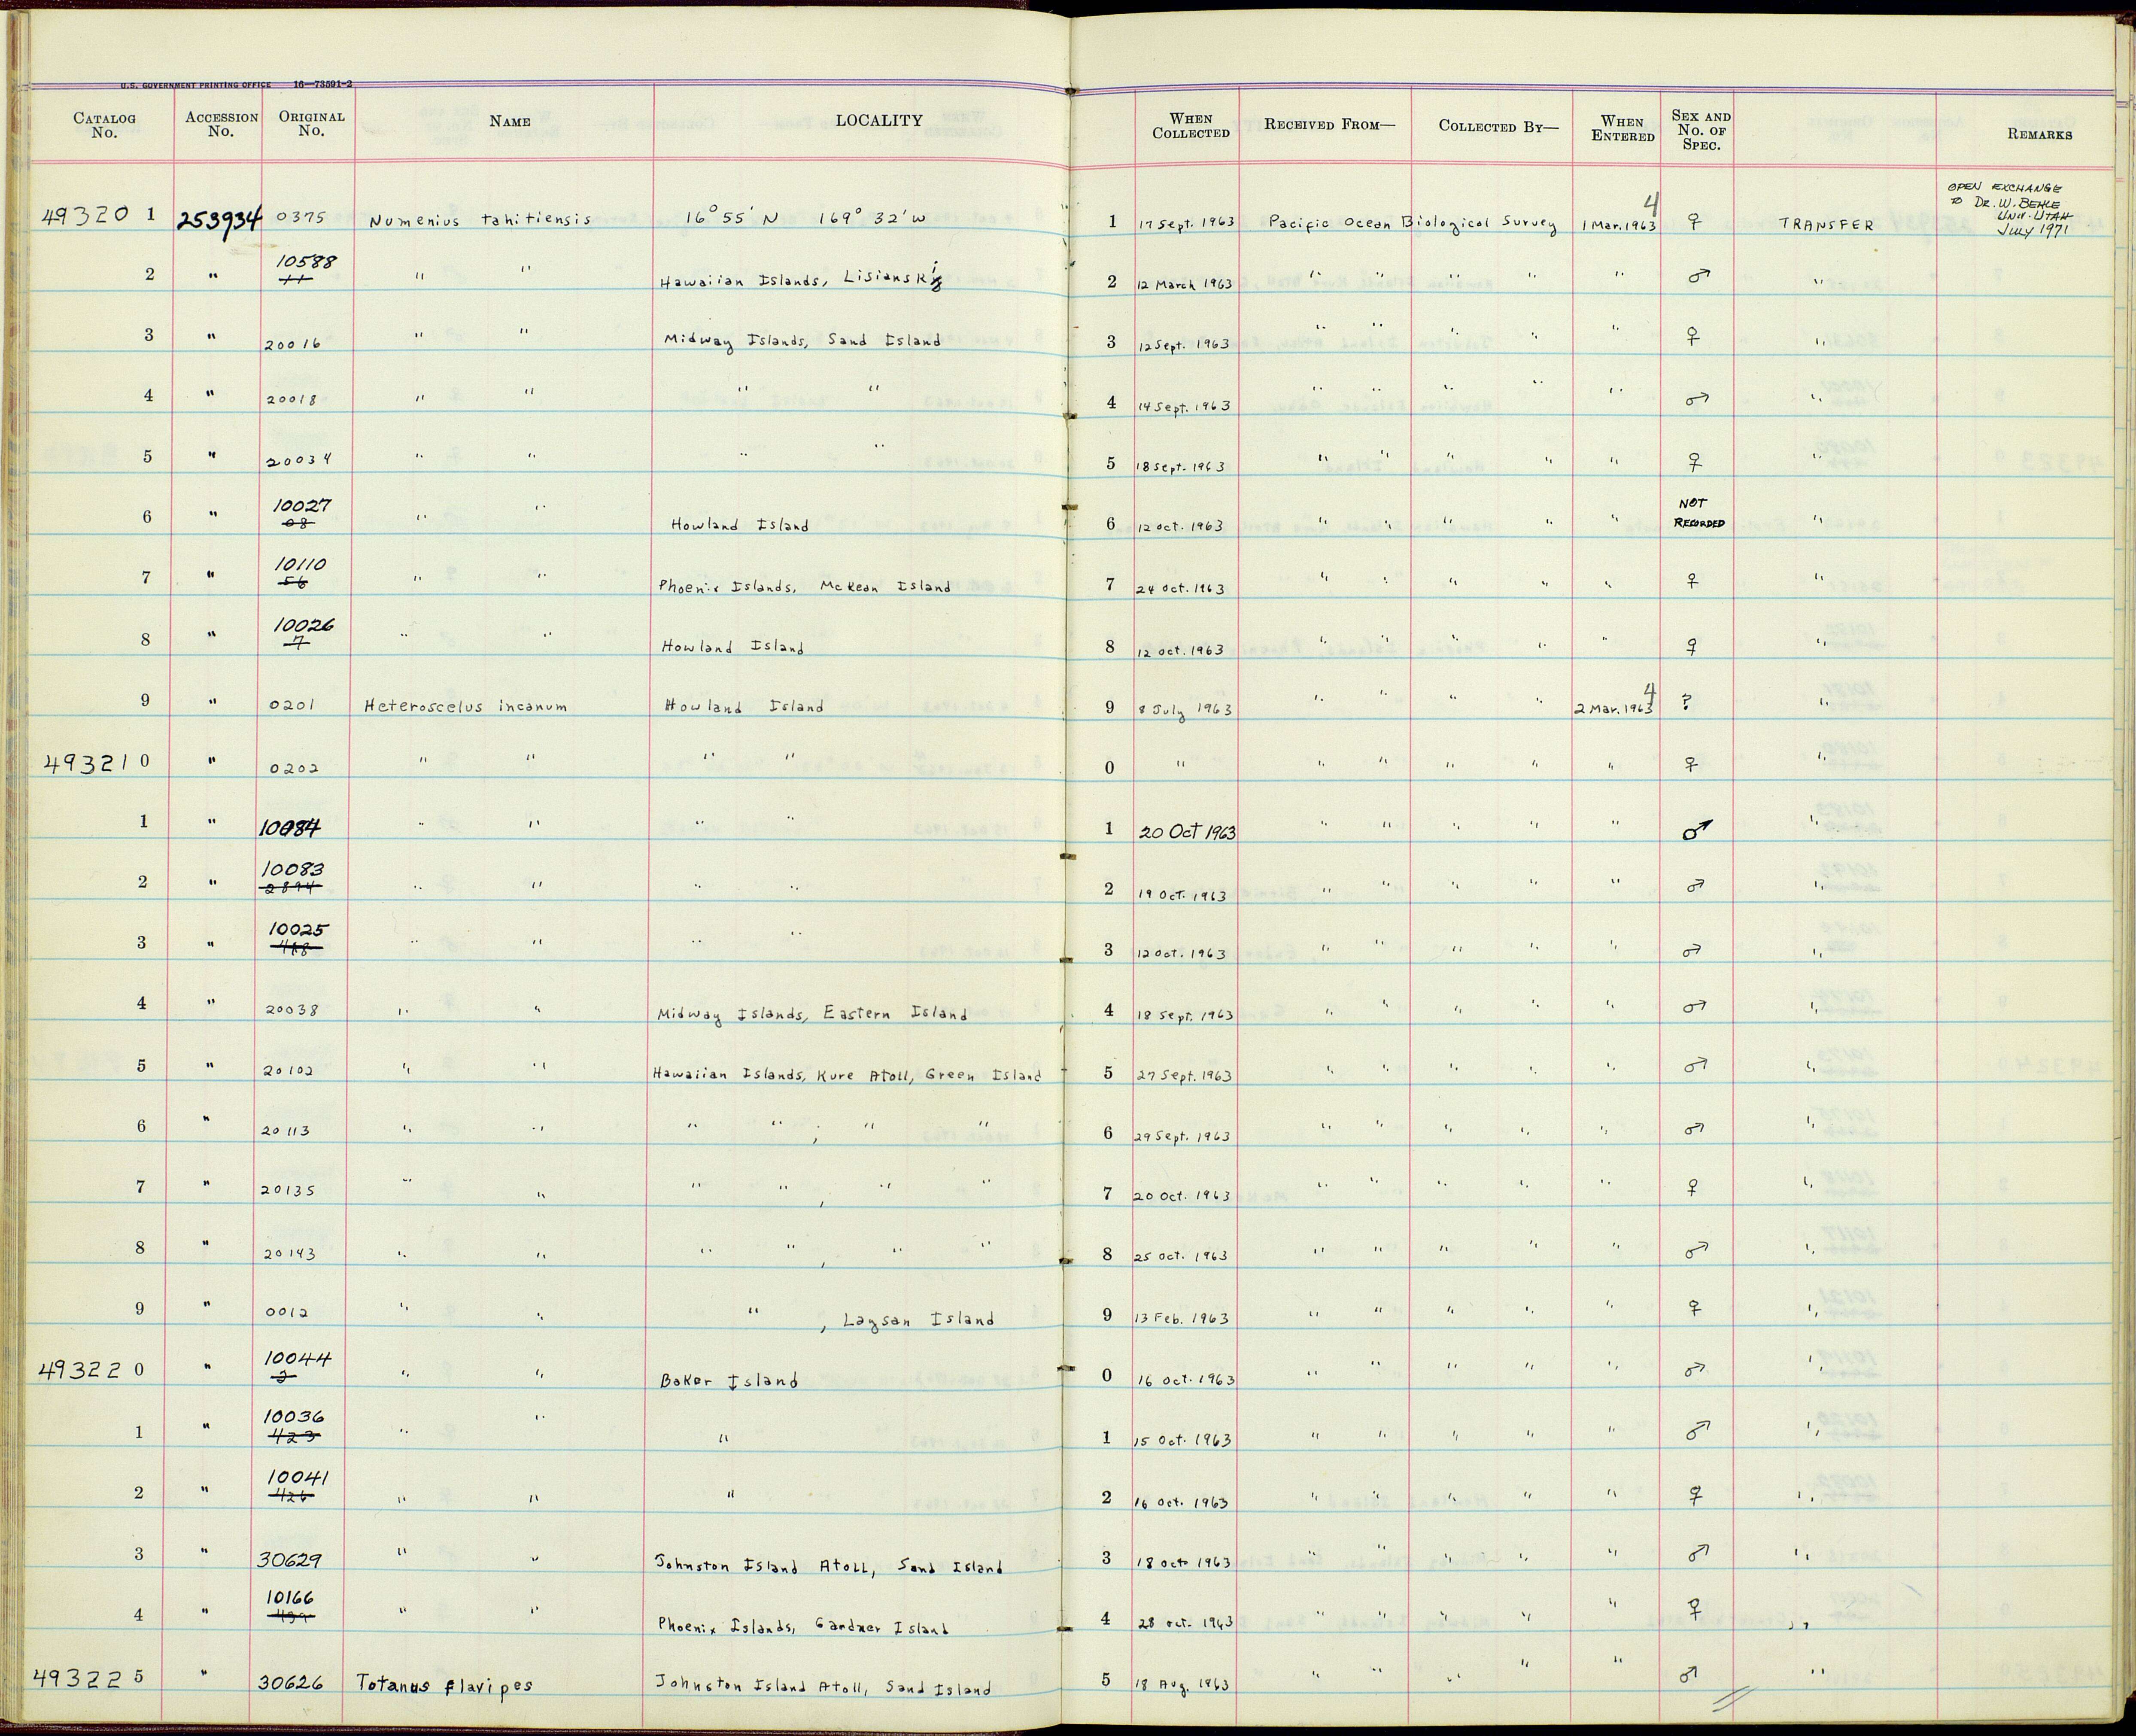 U.S. GOVERNMENT PRINTING OFFICE 16—73591-2
CATALOG No. ACCESSION No. ORIGINAL No. NAME LOCALITY WHEN COLLECTED RECEIVED FROM— COLLECTED BY— WHEN ENTERED SEX AND No. OF SPEC. REMARKS
49320 1 253934 0375 Numenius tahitiensis 16° 55' N 169° 32' W 1 17 Sept. 1963 Pacific Ocean Biological Survey 1 Mar. 1963 4 ♀ TRANSFER OPEN EXCHANGE TO DR. W. BEHLE UNIV. UTAH JULY 1971
2 " 10588 11 " " Hawaiian Islands, Lisianski 2 12 March 1963 " " " " " ♂ "
3 " 20016 " " Midway Islands, Sand Island 3 12 Sept. 1963 " " " " " ♀ "
4 " 20018 " " " " 4 14 Sept. 1963 " " " " " ♂ "
5 " 20034 " " " " 5 18 Sept. 1963 " " " " " ♀ "
6 " 10027 08 " " Howland Island 6 12 Oct. 1963 " " " " " NOT RECORDED "
7 " 10110 56 " " Phoenix Islands, McKean Island 7 24 Oct. 1963 " " " " " ♀ "
8 " 10026 7 " " Howland Island 8 12 Oct. 1963 " " " " " ♀ "
9 " 0201 Heteroscelus incanum Howland Island 9 8 July 1963 " " " " 2 Mar. 1963 4 ? "
49321 0 " 0202 " " " " 0 " " " " " " ♀ "
1 " 10084 " " " " 1 20 Oct 1963 " " " " " ♂ "
2 " 10083 2894 " " " " 2 19 Oct. 1963 " " " " " ♂ "
3 " 10025 418 " " " " 3 12 Oct. 1963 " " " " " ♂ "
4 " 20038 " " Midway Islands, Eastern Island 4 18 Sept. 1963 " " " " " ♂ "
5 " 20102 " " Hawaiian Islands, Kure Atoll, Green Island 5 27 Sept. 1963 " " " " " ♂ "
6 " 20113 " " " " , " " 6 29 Sept. 1963 " " " " " ♂ "
7 " 20135 " " " " , " " 7 20 Oct. 1963 " " " " " ♀ "
8 " 20143 " " " " , " " 8 25 Oct. 1963 " " " " " ♂ "
9 " 0012 " " " , Laysan Island 9 13 Feb. 1963 " " " " " ♀ "
49322 0 " 10044 2 " " Baker Island 0 16 Oct. 1963 " " " " " ♂ "
1 " 10036 423 " " " 1 15 Oct. 1963 " " " " " ♂ "
2 " 10041 426 " " " 2 16 Oct. 1963 " " " " " ♀ "
3 " 30629 " " Johnston Island Atoll, Sand Island 3 18 Oct 1963 " " " " " ♂ "
4 " 10166 " " Phoenix Islands, Gardner Island 4 28 Oct. 1963 " " " " " ♀ "
49322 5 " 30626 Totanus flavipes Johnston Island Atoll, Sand Island 5 18 Aug. 1963 " " " " " ♂ "